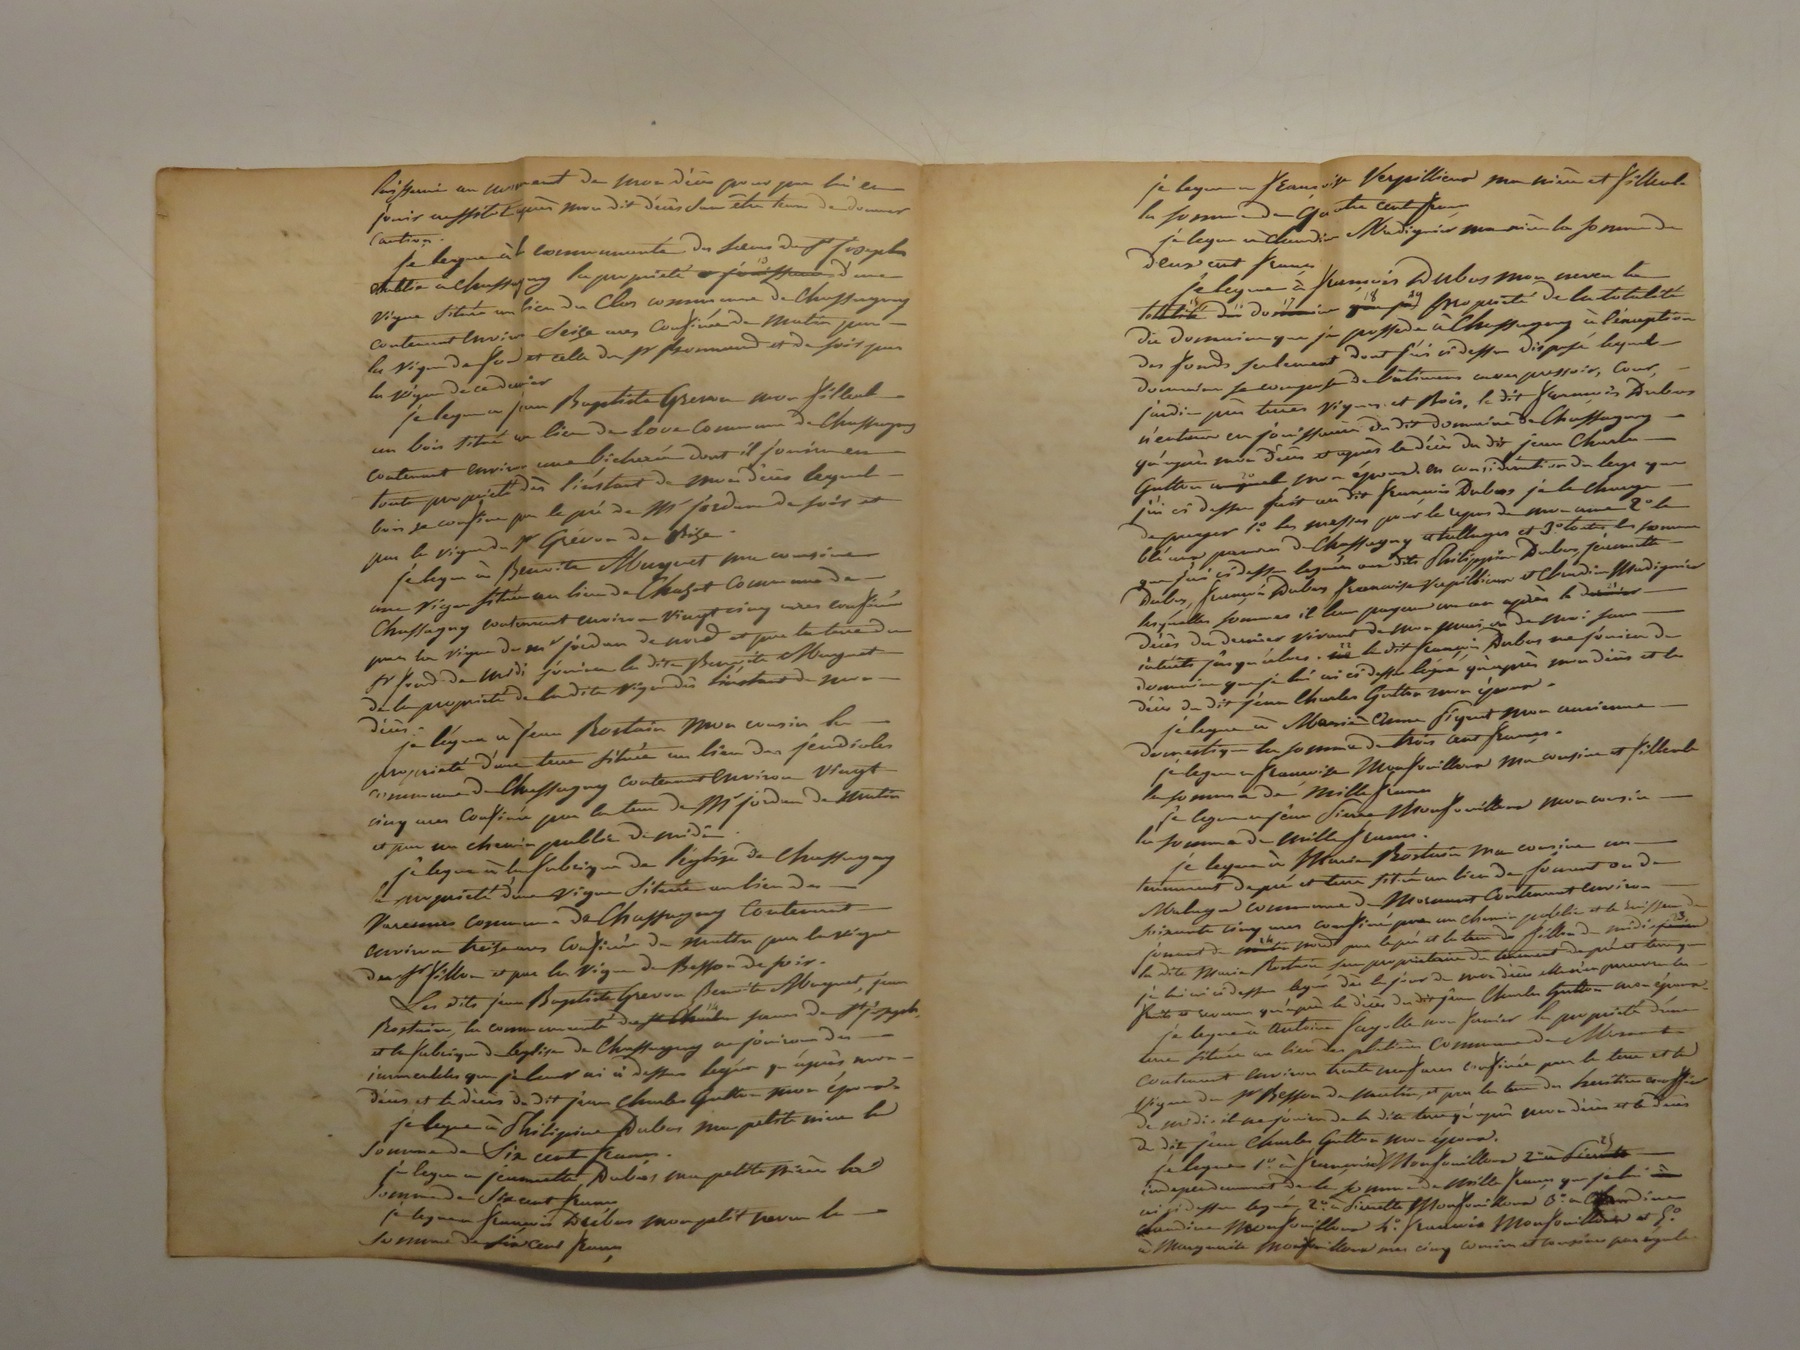 laisserai au moment de mon décès pour par lui en
jouir aussitôt après mon dit décès sans être tenu de donner
caution.
je legue à la communauté des Sœurs de St joseph
établie a Chassagny la propriété et jouissance d'une
vigne située au lieu du Clos commune de Chassagny
contenant environ Seize ares Confinée de matin par
la vigne de fond et celle du Sr Bonnand et de soir par
la vigne de ce dernier
je legue a jean Baptiste Grevon mon filleul
un bois situé au lieu de Love Commune de Chassagny
contenant environ une bicherée dont il jouira en
toute propriété dès l'instant de mon décès lequel
bois se confine par le pré de Mr jordan de soir et
par la vigne du Sr Grévon de Bise.
je legue à Benoite Muguet ma cousine
une vigne située au lieu de Chazot Commune de
Chassagny contenant environ vingt cinq ares confinée
par la vigne de mr jordan de nord et par la terre du
Sr fond de midi jouira la dite Benoite Muguet
de la propriété de la dite vigne dès l'instant de mon
décès.
je légue a jean Rostain mon cousin la
propriété d'une terre située au lieu des
commune de Chassagny contenant environ vingt
cinq ares Confinée par la terre de Mr jordan de matin
et par un chemin public de midi.
je legue à la fabrique de l'église de Chassagny
la propriété d'une vigne Située au lieu des
Varennes commune de Chassagny Contenant
environ treize ares Confinée de matin par la vigne
des Sr fillon et par la vigne de Besson de soir.
Les dits jean Baptiste Grevon Benoite Muguet, jean
Rostain, la communauté des St Charles sœurs de St joseph,
et la fabrique de l'église de Chassagny ne jouiront des
immeubles que je leur ai ci dessus legués qu'après mon
décès et le décès du dit jean Charles Gutton mon époux.
je legue à Philipine Dubos ma petite nièce la
somme de Six cent francs.
je legue a jeannette Dubos ma petite nièce la
Somme de Six cent francs
je legue a françois Dubos mon petit neveu la
Somme de Six cent francs
je legue a françoise Verpillieux ma nièce et filleule
la somme de Quatre cent francs
je legue à Claudine Madignier ma nièce la somme de
deux cent francs
je légue à françois Dubos mon neveu la
totalité du domaine que je propriété de la totalité
du domaine que je possede à Chassagny à l'éxception
des fonds seulement dont j'ai ci dessus disposé lequel
domaine se compose de bâtimens cuves pressoir, Cour,
jardin près terres vignes et Bois, le dit françois Dubos
n'entrera en jouissance du dit domaine de Chassagny
qu'après mon décès et après le décès du dit jean Charles
Gutton mon époux. en considération du legs que
j'ai ci dessus fait au dit françois Dubos je le charge
de payer 1o les messes pour le repos de mon ame 2o le
blé aux pauvres de Chassagny et 3o toutes les sommes
que j'ai ci dessus leguées aux dits Philippine Dubos, jeannette
Dubos, françois Dubos françoise verpillieux et Claudine Madignier
lesquelles sommes il leur payera un an après le dernier
décès du dernier vivant de mon mari ou de moi sans
intérêts jusqu'alors. le dit françois Dubos ne jouira du
domaine que je lui ai ci dessus légué qu'après mon décès et le
décès du dit jean Charles Gutton mon époux.
je legue à Marie Anne Siquet mon ancienne
domestique la somme de trois cent francs.
je legue a françoise Monfouilloux ma cousine et filleule
la somme de mille francs
je legue a jean Pierre Monfouilloux mon cousin
la somme de mille francs.
je legue à Marie Rostain ma cousine un
tenement de pré et terre situé au lieu de ou de
commune de Mornant Contenant environ
soixante cinq ares confiné par un chemin public et le ruisseau de
de nord par le pré et la terre de fillion de midi
la dite Marie Rostain sera propriétaire du tenement de pré et terre que
je lui ai ci dessus legué dès le jour de mon décès elle n'en percevra les
fruits et revenus qu'après le décès du dit jean Charles Gutton mon époux.
je legue à Antoine fayolle mon fermier la propriété d'une
terre située au lieu des platières Commune de Mornant
contenant environ trente neuf ares confinée par la terre et la
vigne du Sr Besson de matin, et par la terre des heritiers
de midi, il ne jouira de la dite terre qu'après mon décès et le décès
du dit jean Charles Gutton mon époux.
je legue 1o à françoise Monfouilloux 2o à Pierrette
independamment de la somme de mille francs que je lui
ai ci dessus legué, 2o à Pierrette Monfouilloux 3o a Claudine
Claudine Monfouilloux 4o françois Monfouilloux et 5o
à Marguerite Monfouilloux mes cinq cousins et cousines par egale